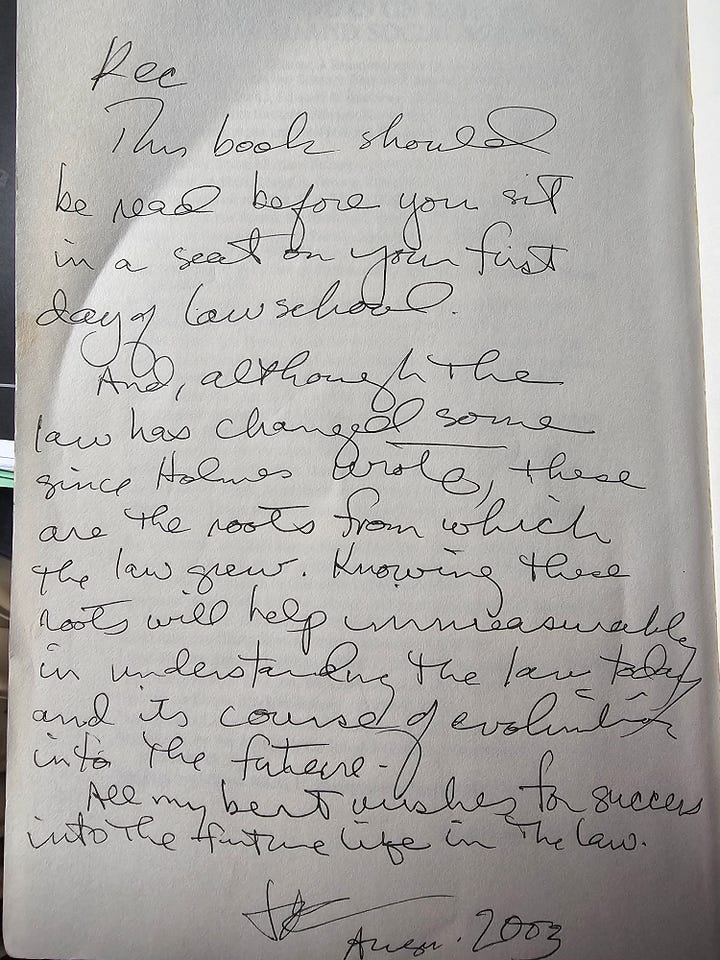 Rec
This book should
be read before you sit
in a seat on your first
day of law school.
And, although the
law has changed some
since Holmes wrote, these
are the roots from which
the law grew. Knowing these
roots will help immeasurably
in understanding the law today
and its course of evolution
into the future.
All my best wishes for success
into the future life in the law.
2003